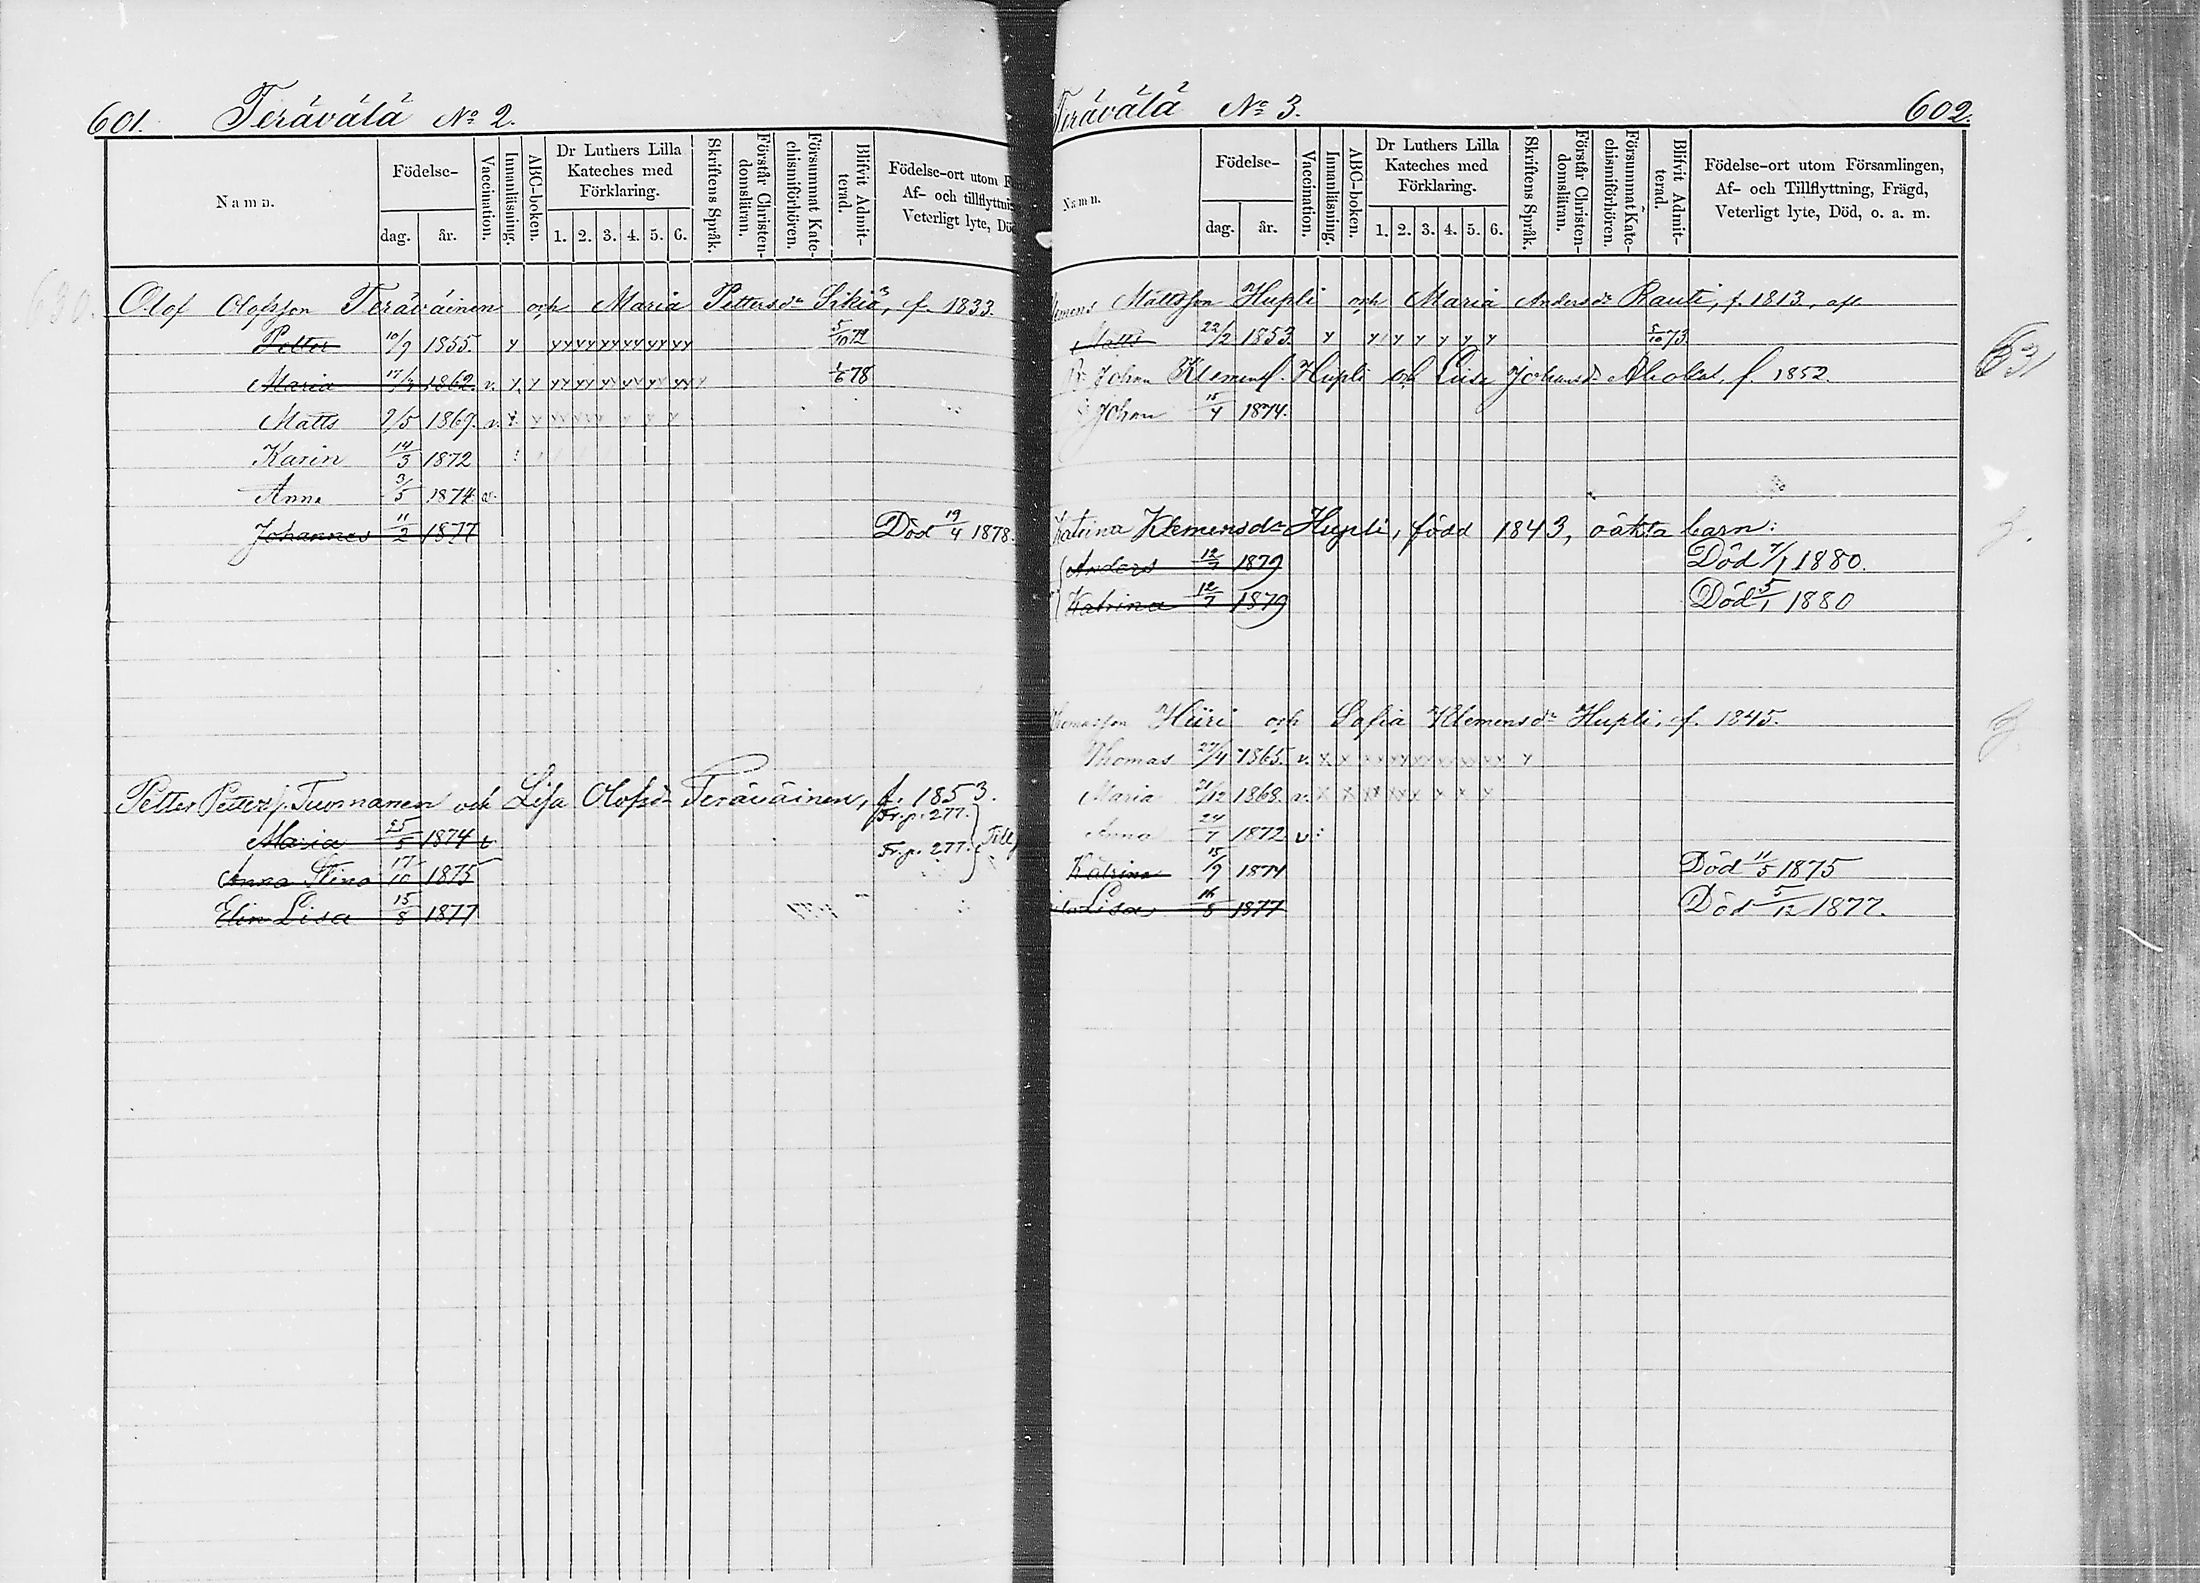 601. Terävälä No 2.
Namn.
Födelse-
dag. år.
Vaccination.
Innanläsning.
ABC-boken.
Dr Luthers Lilla
Kateches med
Förklaring.
1. 2. 3. 4. 5. 6.
Skriftens Språk.
Förstår Christen-
domsläran.
Försummat Kate-
chismiförhören.
Blifvit Admit-
terad.
Födelse-ort utom
Af- och tillflyttni
Veterligt lyte, Dö
630.
Olof Olofsson Teräväinen och Maria Pettersdr Sikiä, f. 1833.
Petter 10/9 1855. 5/10 72
Maria 1862. v. 1/6 78
Matts 1869. v.
Karin 14/3 1872
Anna 3/5 1874 v.
Johannes 11/2 1877 Död 19/4 1878.
Petter Petterss. Tuonanen och Lisa Olofsdr Teräväinen, f. 1853.
Maria 25/5 1874 v Fr. p. 277.
Anna Stina 17/10 1875 Fr. p. 277. Till
Elin Lisa 15/8 1877
Terävälä No 3. 602.
Namn.
Födelse-
dag. år.
Vaccination.
Innanläsning.
ABC-boken.
Dr Luthers Lilla
Kateches med
Förklaring.
1. 2. 3. 4. 5. 6.
Skriftens Språk.
Förstår Christen-
domsläran.
Försummat Kate-
chismiförhören.
Blifvit Admit-
terad.
Födelse-ort utom Församlingen,
Af- och Tillflyttning, Frägd,
Veterligt lyte, Död, o. a. m.
Mattsson Hupli och Maria Andersdr Rauti, f. 1813,
Matts 22/2 1853. 5/10 73
Johan Klemenss. Hupli och Lisa Johansdr f. 1852.
Johan 15/4 1874.
Katrina Klemensdr Hupli, född 1843, oäkta barn:
Anders 12/7 1879 Död 7/1 1880.
Katrina 12/7 1879 Död 5/1 1880
Thomasson Hiiri och Sofia Klemensdr Hupli, f. 1845.
Thomas 27/4 1865. v.
Maria 1868. v.
Anna 24/7 1872 v.
Katrina 15/9 1874 Död 11/5 1875
Lisa 16/8 1877 Död 5/12 1877.